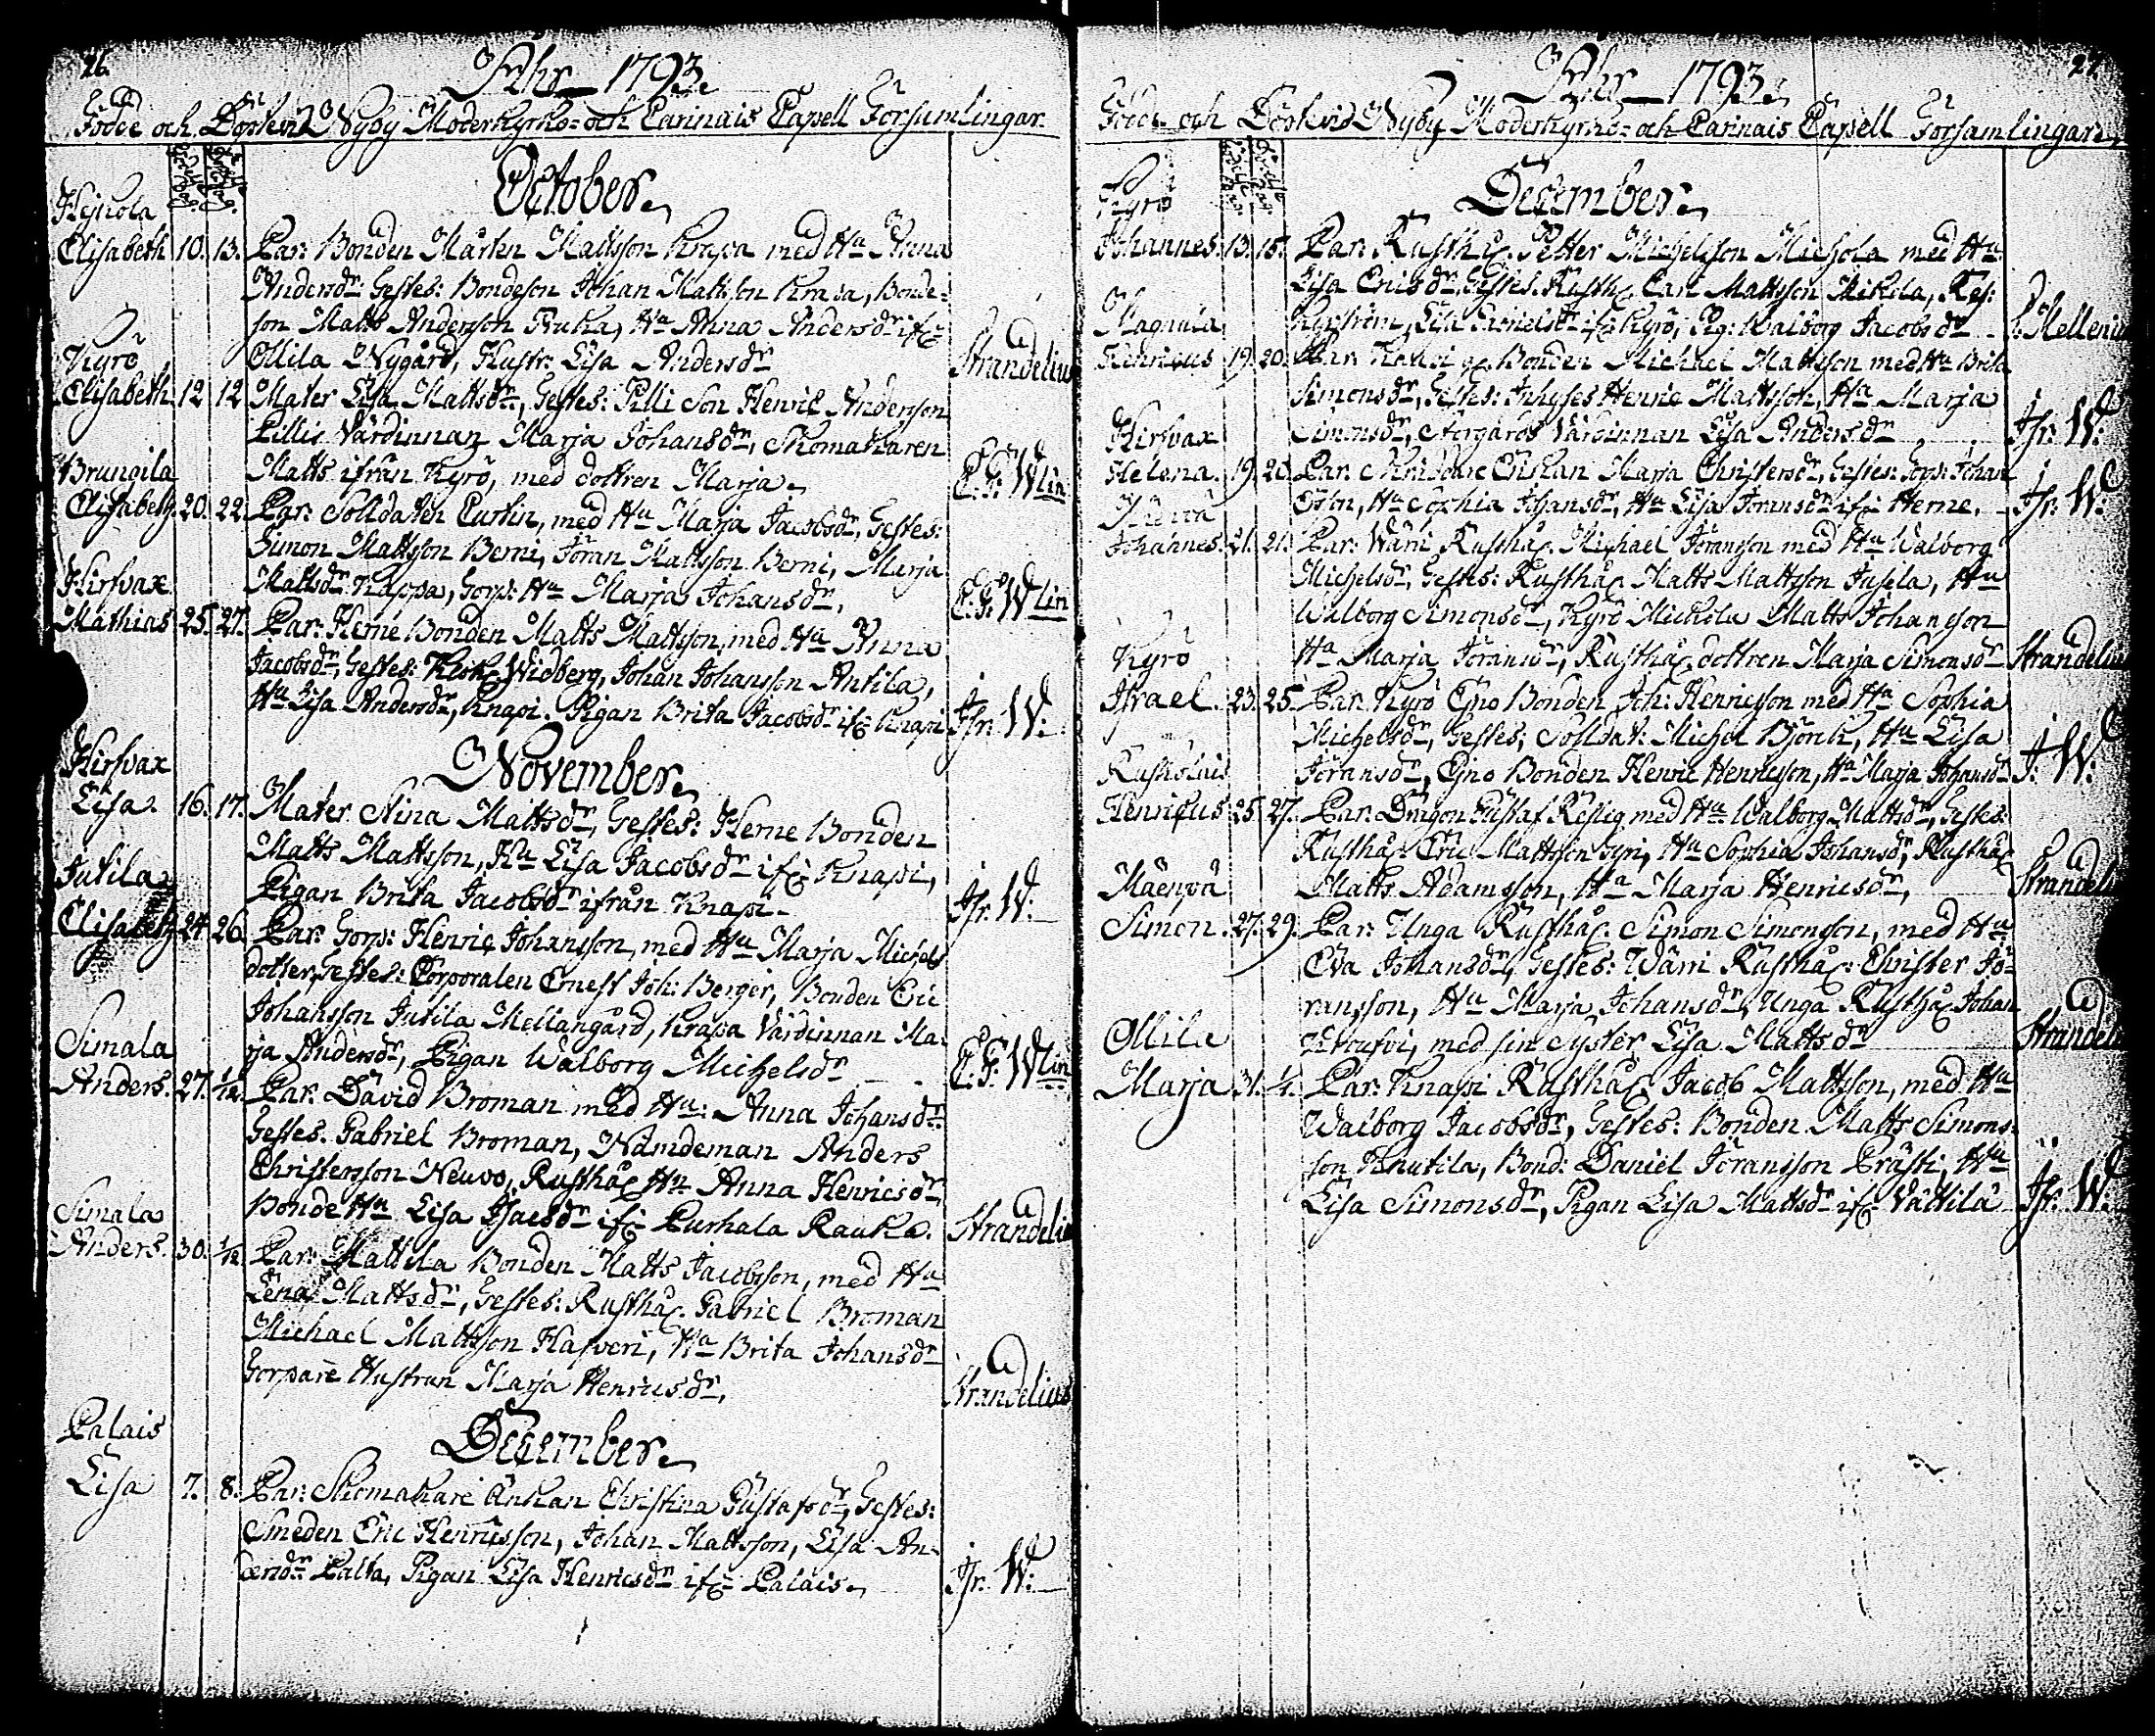 26.
Åhr 1793.
Födde och Döpte vid Nyby Moderkyrko- och Carinais Capell Församlingar.
October.
Heikola
Elisabeth 10. 13. Par: Bonden Mårten Mattsson Krapa med Hu Anna
Andersdr: Testes: Bondeson Johan Mattsson Krapa, Bonde-
son Matts Andersson Ruka, Ha Anna Andersdr ifr:
Ollila Nygård, Hustr: Lisa Andersdr
Strandelius
Kyrö
Elisabeth. 12 12 Mater Lisa Mattsdr, Testes: Pilli Son Henric Andersson
Pillis Värdinnan Marja Johansdr, Skomakaren
Matts ifrån Kyrö, med dottren Marja.
C. F. Wlin
Brungila
Elisabeth. 20. 22. Par: Solldaten Curtin, med Hu Marja Jacobsdr, Testes:
Simon Mattsson Berni, Jöran Mattsson Berni, Marja
Mattsdr Kappa, Torp: Hu Marja Johansdr,
C. F. Wlin
Hirfvax
Mathias 25. 27. Par: Herne Bonden Matts Mattsson, med Hu Anna
Jacobsdr, Testes: Widberg, Johan Johansson Antila,
Hu Lisa Andersdr, Knapi. Pigan Brita Jacobsdr ifr: Knapi
Jfr: W:
November.
Hirfvax
Lisa. 16. 17. Mater Stina Mattsdr, Testes: Herne Bonden
Matts Mattsson, Hu Lisa Jacobsdr ifr: Knapi,
Pigan Brita Jacobsdr ifrån Knapi.
Jfr: W:
Jutila
Elisabeth 24 26. Par: Torp: Henric Johansson, med Hu Marja Michels
dotter, Testes: Corporalen Ernest Joh: Berger, Bonden Eric
Johansson Jutila Mellangård, Krapa Värdinnan Ma-
rja Andersdr, Pigan Walborg Michelsdr
C. F. Wlin
Simala
Anders. 27. 1/12. Par: David Broman med Hu: Anna Johansdr:
Testes: Gabriel Broman, Nämdeman Anders
Christersson Neuvo, Rusthål: Hu Anna Henricsdr,
Bonde Hu Lisa Isacsdr ifr: Purhala Rauka.
Strandelius
Simala
Anders. 30. 1/12. Par: Mattila Bonden Matts Jacobsson, med Hu
Lena Mattsdr, Testes: Rusthål: Gabriel Broman
Michael Mattsson Hafveri, Ha Brita Johansdr
Torpare Hustrun Marja Henricsdr,
Strandelius
December.
Palais
Lisa 7. 8. Par: Skomakare Änkan Christina Gustafsdr, Testes:
Smeden Eric Henricsson, Johan Mattsson, Lisa An-
dersdr Palta, Pigan Lisa Henricsdr ifr: Palais.
Jfr: W:
27
Åhr 1793.
Födde och Döpte vid Nyby Moderkyrko- och Carinais Capell Församlingar.
December.
Kyrö
Johannes. 13. 15. Par: Rusthål: Petter Michelsson Michola med Hu
Lisa Ericsdr, Testes: Rusth: Carl Mattsson Mikila,
Lisa ifr: Kyrö, Pig: Walborg Jacobsdr
Mellenius
Magnula
Henricus 19. 20. Par: Bonden Michael Mattsson med Hu Brita
Simonsdr, Testes: Inhyses Henric Mattsson, Hu Marja
Simonsdr, Värdinnan Lisa Andersdr
Jfr: W:
Hirfvax
Helena. 19. 20. Par: Enkan Marja Christersdr, Testes: Torp: Johan
Hu Sophia Johansdr, Hu Lisa Jöransdr ifr: Herne.
Jfr: W:
Johannes. 21. 21. Par: Wärri Rusthål: Michael Jöransson med Hu Walborg
Michelsdr, Testes: Rusthål: Matts Mattsson Jusela, Hu
Walborg Simonsdr, Kyrö Michola Matts Johansson
Ha Marja Jöransdr, Rusthål: dottren Marja Simonsdr
Strandelius
Kyrö
Israel. 23. 25. Par: Kyrö Eino Bonden Joh: Henricsson med Hu Sophia
Michelsdr, Testes: Solldat: Michel Björck, Hu Lisa
Jöransdr, Eino Bonden Henric Henricsson, Ha Marja Johansdr
J: W:
Ruskolais
Henricus 25. 27. Par: Dragon Gustaf Restig med Hu Walborg Mattsdr, Testes:
Rusthål: Eric Mattsson Hu Sophia Johansdr, Rusthål:
Matts Adamsson, Ha Marja Henricsdr,
Strandel
Mäenpä
Simon. 27. 29. Par: Unga Rusthål: Simon Simonsson, med Hu
Eva Johansdr, Testes: Wärri Rusthål: Christer Jö-
ransson, Hu Marja Johansdr, Unga Rusthål: Johan
med sin syster Lisa Mattsdr
Strandel
Ollila
Marja 31. 1/1. Par: Knapi Rusthål: Jacob Mattsson, med Hu
Walborg Jacobsdr, Testes: Bonden Matts Simons-
son Knutila, Bond: Daniel Jöransson Prästi, Hu
Lisa Simonsdr, Pigan Lisa Mattsdr ifr: Vättilä
Jfr: W: